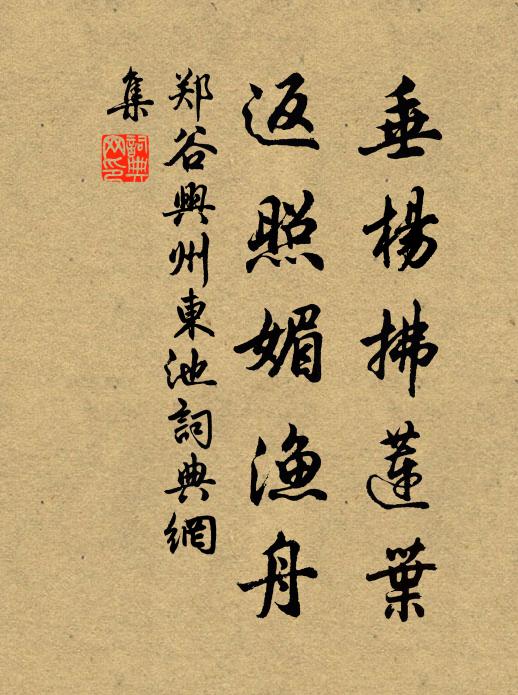 垂楊拂蓮葉
返照媚漁舟
郑谷興州東池詞典網
集
詞典
网印